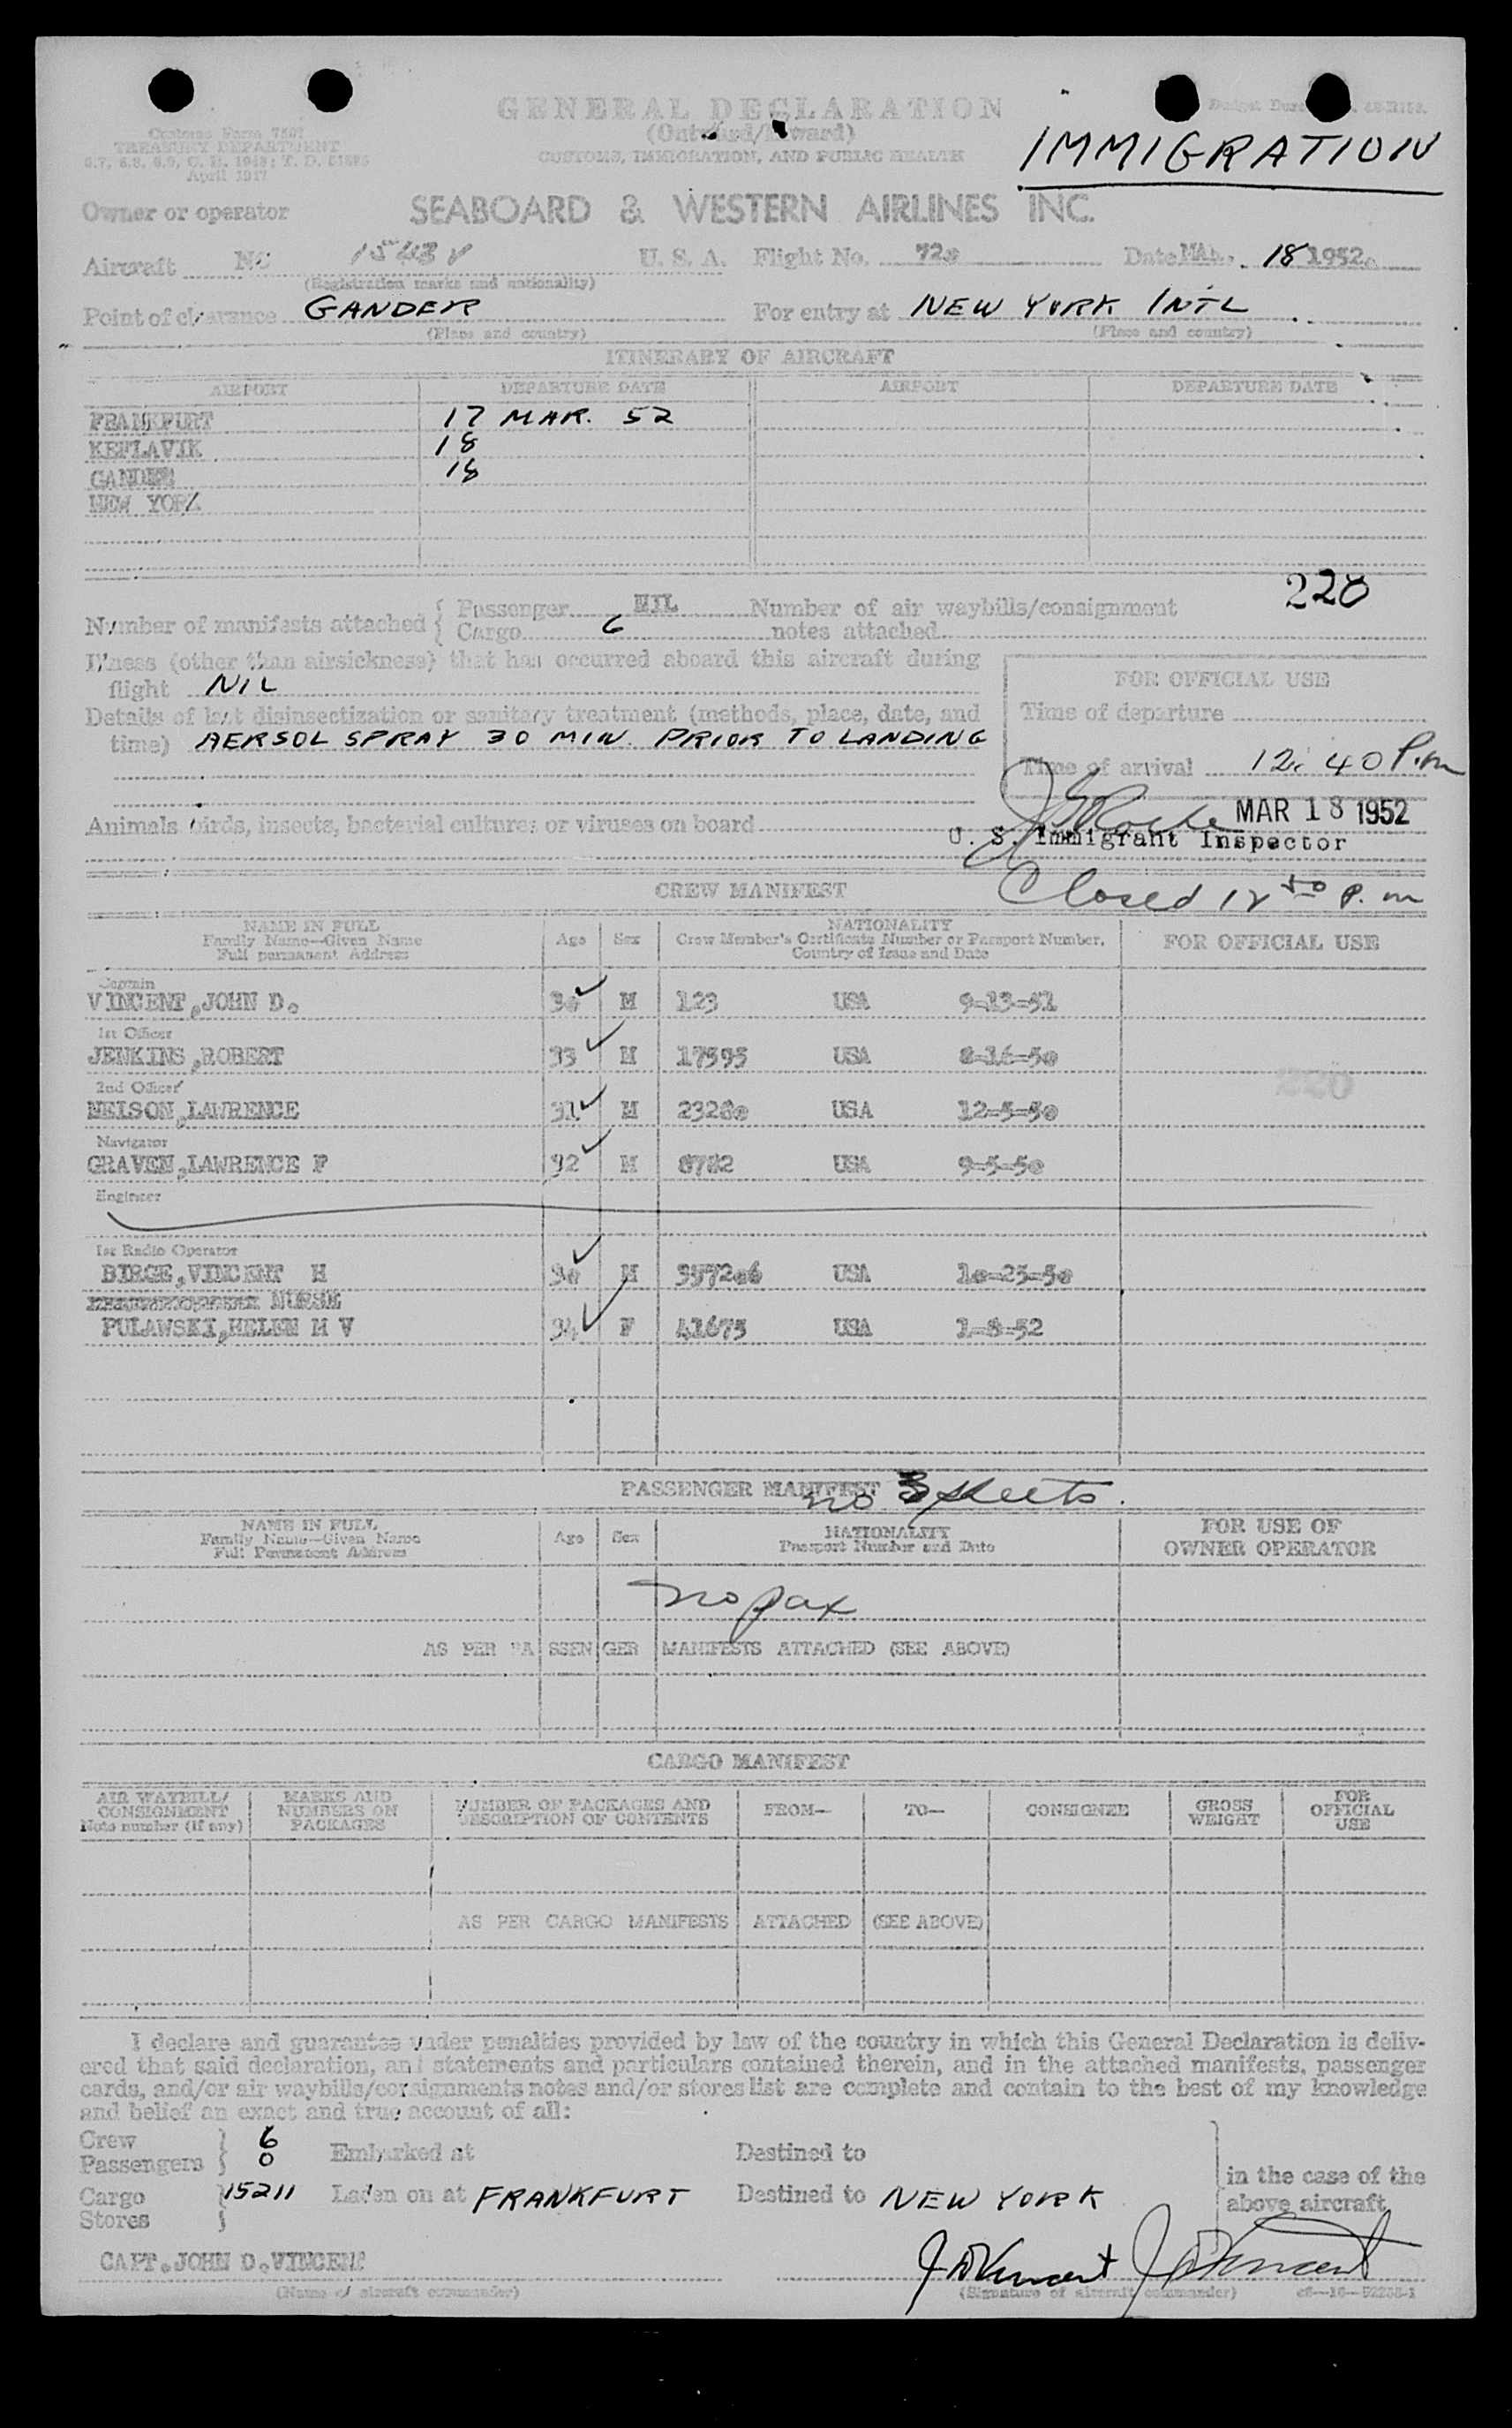 GENERAL DECLARATION
(Outward/Inward)
CUSTOMS, IMMIGRATION, AND PUBLIC HEALTH
Customs Form 7507
TREASURY DEPARTMENT
April 1947
IMMIGRATION
Owner or operator SEABOARD & WESTERN AIRLINES INC.
Aircraft NC 1543V U. S. A. Flight No. 72 Date MAR. 18 1952
(Registration marks and nationality)
Point of clearance GANDER For entry at NEW YORK INTL
(Place and country) (Place and country)
ITINERARY OF AIRCRAFT
AIRPORT DEPARTURE DATE AIRPORT DEPARTURE DATE
FRANKFURT 17 MAR. 52
KEFLAVIK 18
GANDER 18
NEW YORK
220
Number of manifests attached { Passenger NIL Number of air waybills/consignment
Cargo 6 notes attached
Illness (other than airsickness) that has occurred aboard this aircraft during
flight NIL
FOR OFFICIAL USE
Details of last disinsectization or sanitary treatment (methods, place, date, and
time) AERSOL SPRAY 30 MIN. PRIOR TO LANDING
Time of departure
Time of arrival 12:40 P.m
MAR 18 1952
Animals, birds, insects, bacterial cultures or viruses on board
U. S. Immigrant Inspector
Closed 12 50 P. m
CREW MANIFEST
NAME IN FULL
Family Name—Given Name
Full permanent Address
Age Sex
NATIONALITY
Crew Member's Certificate Number or Passport Number,
Country of Issue and Date
FOR OFFICIAL USE
Captain
VINCENT, JOHN D. M 123 USA 9-13-51
1st Officer
JENKINS, ROBERT 33 M 17595 USA 8-16-50
2nd Officer
NELSON, LAWRENCE 31 M 23280 USA 12-5-50
220
Navigator
GRAVEN, LAWRENCE F 32 M 8782 USA 9-5-50
Engineer
1st Radio Operator
BIRGE, VINCENT H 30 M 357206 USA 10-25-50
NURSE
PULAWSKI, HELEN M V 34 F 41675 USA 1-8-52
PASSENGER MANIFEST no 3 sheets.
NAME IN FULL
Family Name—Given Name
Full Permanent Address
Age Sex
NATIONALITY
Passport Number and Date
FOR USE OF
OWNER OPERATOR
no pax
AS PER PASSENGER MANIFESTS ATTACHED (SEE ABOVE)
CARGO MANIFEST
AIR WAYBILL/
CONSIGNMENT
Note number (if any)
MARKS AND
NUMBERS ON
PACKAGES
NUMBER OF PACKAGES AND
DESCRIPTION OF CONTENTS
FROM— TO— CONSIGNEE
GROSS
WEIGHT
FOR
OFFICIAL
USE
AS PER CARGO MANIFESTS ATTACHED (SEE ABOVE)
I declare and guarantee under penalties provided by law of the country in which this General Declaration is deliv-
ered that said declaration, and statements and particulars contained therein, and in the attached manifests, passenger
cards, and/or air waybills/consignments notes and/or stores list are complete and contain to the best of my knowledge
and belief an exact and true account of all:
Crew 6
Passengers 0 Embarked at Destined to
in the case of the
Cargo 15211 Laden on at FRANKFURT Destined to NEW YORK
above aircraft
Stores
CAPT. JOHN D. VINCENT JDVincent JDVincent
(Name of aircraft commander) (Signature of aircraft commander)